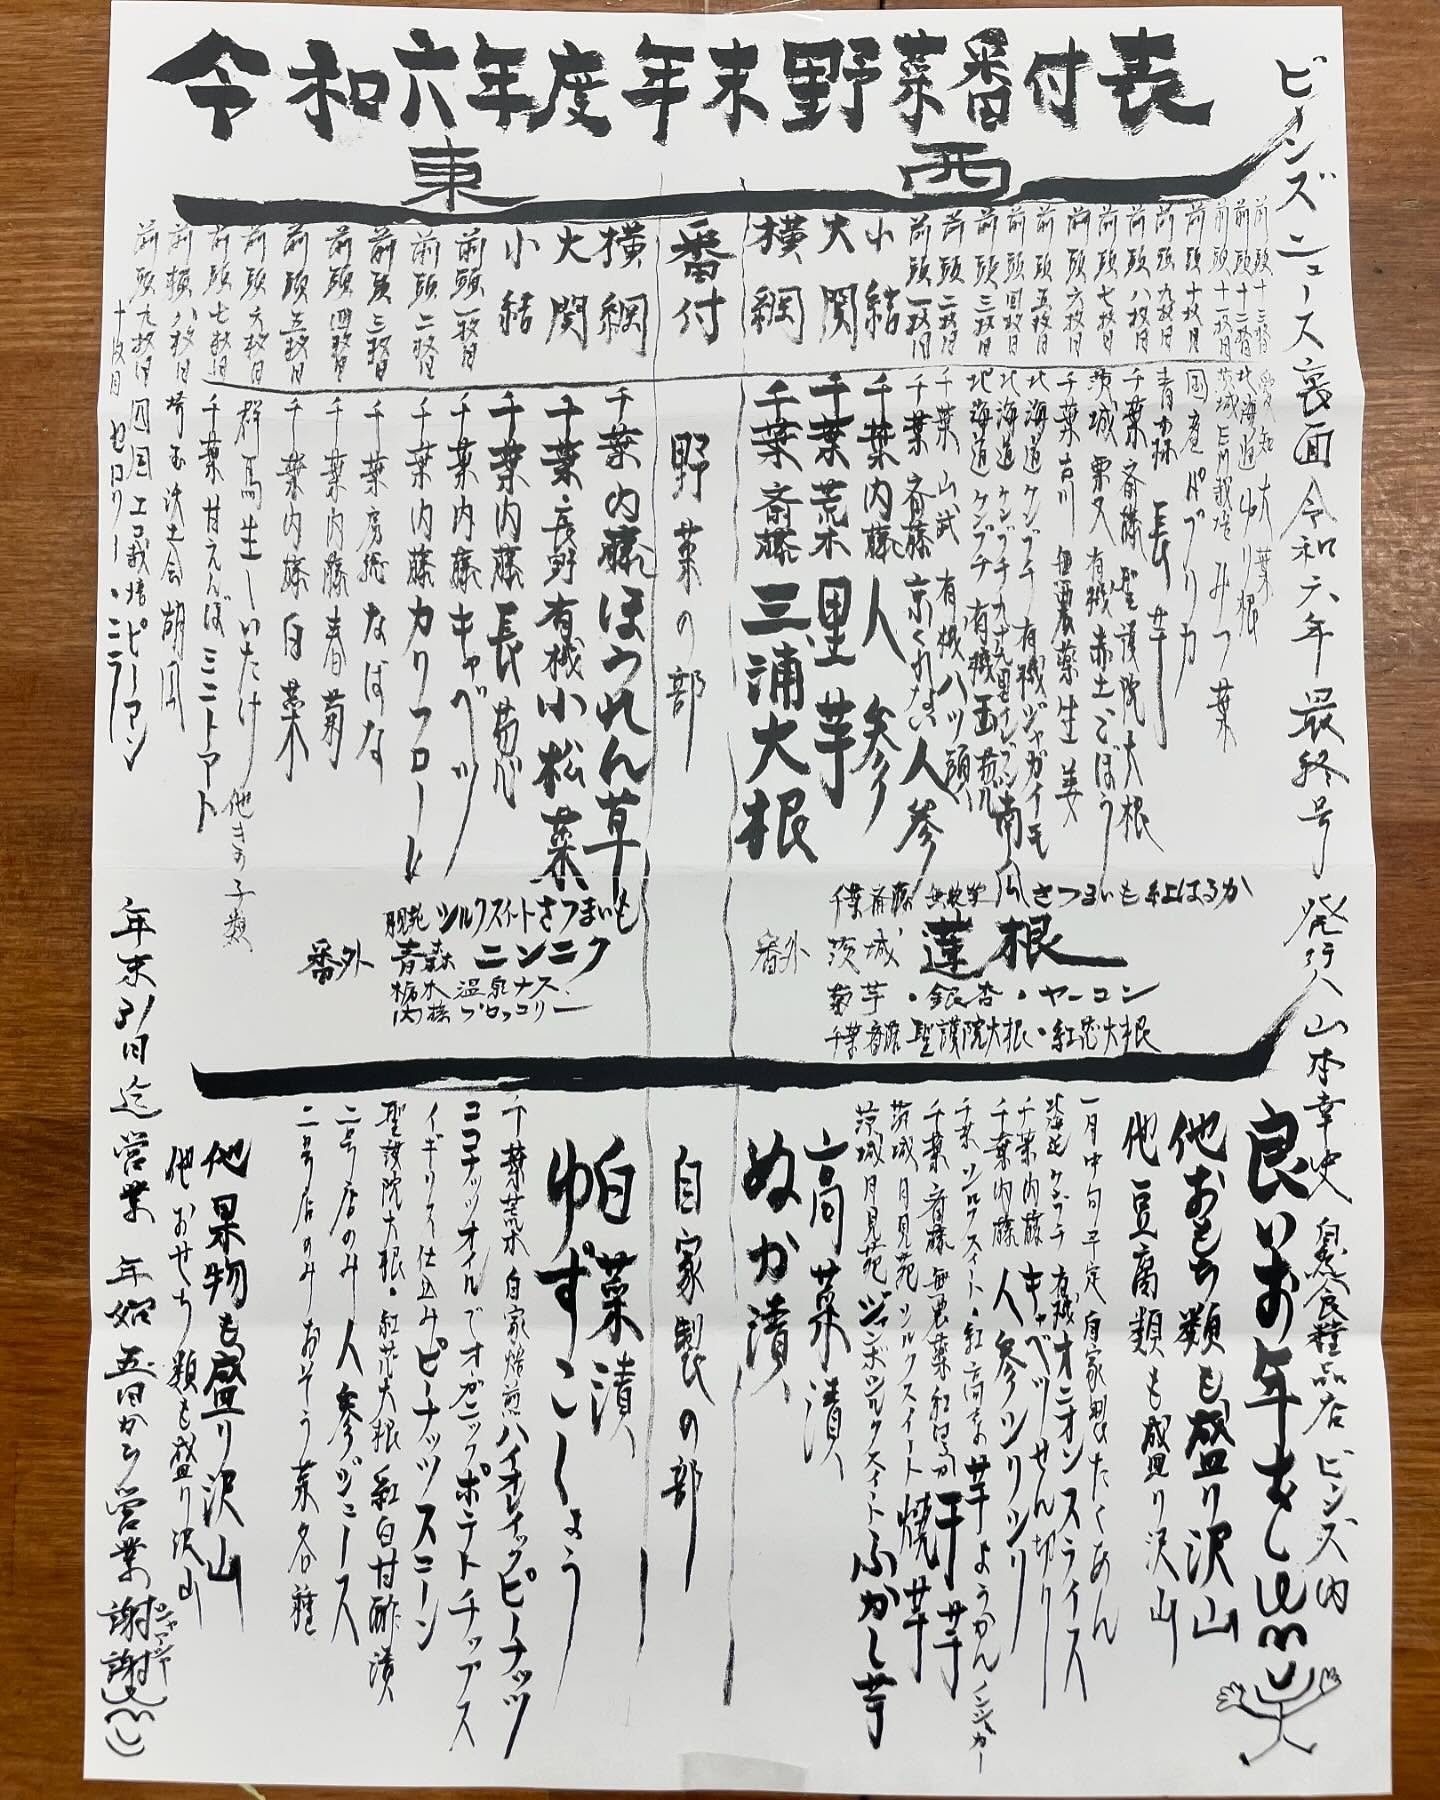 令和六年度年末野菜番付表
西
東
ビーンズニュース裏面 令和六年 最終号 発行人 山本幸史 自然食糧品店 ビーンズ内
前頭十三枚目 愛知 大葉
前頭十二枚目 北海道 ゆり根
前頭十一枚目 茨城 みつ葉
前頭十枚目 国産 パプリカ
前頭九枚目 青森 長芋
前頭八枚目 千葉 斎藤 聖護院大根
前頭七枚目 茨城 栗又 有機赤土ごぼう
前頭六枚目 千葉 吉川 無農薬生姜
前頭五枚目 北海道 ケンブチ 有機ジャガイモ
前頭四枚目 北海道 ケンブチ 南瓜
前頭三枚目 北海道 ケンブチ 有機玉葱
前頭二枚目 千葉 山武 有機八ッ頭
前頭一枚目 千葉 斎藤 京くれない人参
小結 千葉内藤 人参
大関 千葉荒木 里芋
横綱 千葉斎藤 三浦大根
番付 野菜の部
横綱 千葉内藤 ほうれん草
大関 千葉長野 有機小松菜
小結 千葉内藤 長葱
前頭一枚目 千葉内藤 キャベツ
前頭二枚目 千葉内藤 カリフロー
前頭三枚目 千葉房総 なばな
前頭四枚目 千葉内藤 春菊
前頭五枚目 千葉内藤 白菜
前頭六枚目 群馬 生しいたけ 他きの子類
前頭七枚目 千葉 甘えんぼミニトマト
前頭八枚目 埼玉 沃土会 胡瓜
前頭九枚目 四国 エコ栽培 ピーマン
十枚目 セロリー・ニラ
さつまいも 紅はるか
番外 茨城 蓮根
菊芋・銀杏・ヤーコン
千葉斎藤 聖護院大根・紅芯大根
シルクスイートさつまいも
番外 青森 ニンニク
栃木 温泉ナス
内藤 ブロッコリー
良いお年を
他おもち類も盛り沢山
他豆腐類も盛り沢山
一月中旬予定 自家製たくあん
北海道 ケンブチ 有機オニオンスライス
千葉内藤 キャベツせん切り
千葉内藤 人参シリシリ
千葉 シルクスイート・紅高 芋ようかん ノンシュガー
千葉 斎藤 無農薬紅はるか 干芋
茨城 月見苑 シルクスイート 焼芋
茨城 月見苑 ジャンボシルクスイート ふかし芋
高菜漬
ぬか漬
自家製の部
白菜漬
ゆずこしょう
千葉荒木 自家焙煎 ハイオレイックピーナッツ
ココナッツオイルでオーガニックポテトチップス
イギリス仕込み ピーナッツスコーン
聖護院大根・紅芯大根 紅白甘酢漬
二号店のみ 人参ジュース
二号店のみ おそう菜各種
他果物も盛り沢山
他おせち類も盛り沢山
年末31日迄営業 年始五日から営業 謝謝